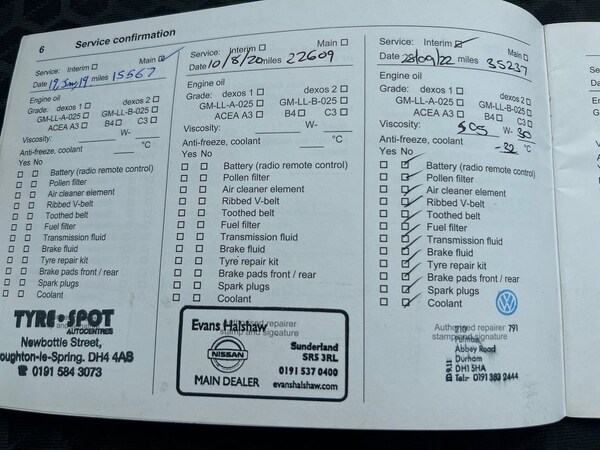 6 Service confirmation
Service: Interim ☐ Main ☑
Date 12 Jany 19 miles 15567
Engine oil
Grade: dexos 1 ☐ dexos 2 ☐
GM-LL-A-025 ☐ GM-LL-B-025 ☐
ACEA A3 ☐ B4 ☐ C3 ☐
Viscosity: W-
Anti-freeze, coolant °C
Yes No
☐ ☐ Battery (radio remote control)
☐ ☐ Pollen filter
☐ ☐ Air cleaner element
☐ ☐ Ribbed V-belt
☐ ☐ Toothed belt
☐ ☐ Fuel filter
☐ ☐ Transmission fluid
☐ ☐ Brake fluid
☐ ☐ Tyre repair kit
☐ ☐ Brake pads front / rear
☐ ☐ Spark plugs
☐ ☐ Coolant
TYRE•SPOT
AUTOCENTRES
Newbottle Street,
oughton-le-Spring. DH4 4AB
☎ 0191 584 3073
Service: Interim ☐ Main ☐
Date 10/8/20 miles 22609
Engine oil
Grade: dexos 1 ☐ dexos 2 ☐
GM-LL-A-025 ☐ GM-LL-B-025 ☐
ACEA A3 ☐ B4 ☐ C3 ☐
Viscosity: W-
Anti-freeze, coolant °C
Yes No
☐ ☐ Battery (radio remote control)
☐ ☐ Pollen filter
☐ ☐ Air cleaner element
☐ ☐ Ribbed V-belt
☐ ☐ Toothed belt
☐ ☐ Fuel filter
☐ ☐ Transmission fluid
☐ ☐ Brake fluid
☐ ☐ Tyre repair kit
☐ ☐ Brake pads front / rear
☐ ☐ Spark plugs
☐ ☐ Coolant
Authorised repairer
stamp and signature
Evans Halshaw
NISSAN
MAIN DEALER
Sunderland
SR5 3RL
0191 537 0400
evanshalshaw.com
Service: Interim ☑ Main ☐
Date 28/09/22 miles 35237
Engine oil
Grade: dexos 1 ☐ dexos 2 ☐
GM-LL-A-025 ☐ GM-LL-B-025 ☐
ACEA A3 ☐ B4 ☐ C3 ☐
Viscosity: W- 30
Anti-freeze, coolant -32 °C
Yes No
☐ ☑ Battery (radio remote control)
☐ ☑ Pollen filter
☐ ☑ Air cleaner element
☐ ☑ Ribbed V-belt
☐ ☑ Toothed belt
☐ ☑ Fuel filter
☐ ☑ Transmission fluid
☐ ☑ Brake fluid
☐ ☑ Tyre repair kit
☐ ☑ Brake pads front / rear
☐ ☑ Spark plugs
☐ ☑ Coolant
Authorised repairer 791
stamp and signature
Abbey Road
Durham
DH1 5HA
Tel:- 0191 383 2444